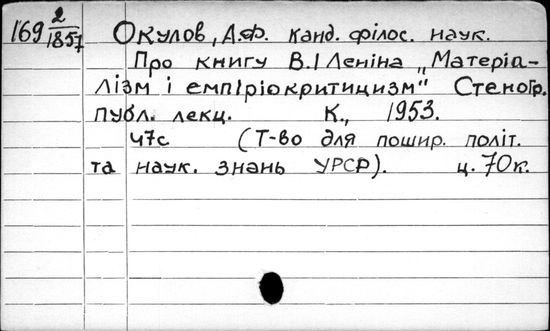 169 2/1857 Окулов, А.Ф. канд. філос. наук.
Про книгу В.І Леніна „Матеріа-
лізм і емпіріокритицизм" Стеногр.
публ. лекц. К., 1953.
47с (Т-во для пошир. політ.
та наук. знань УРСР). ц. 70к.